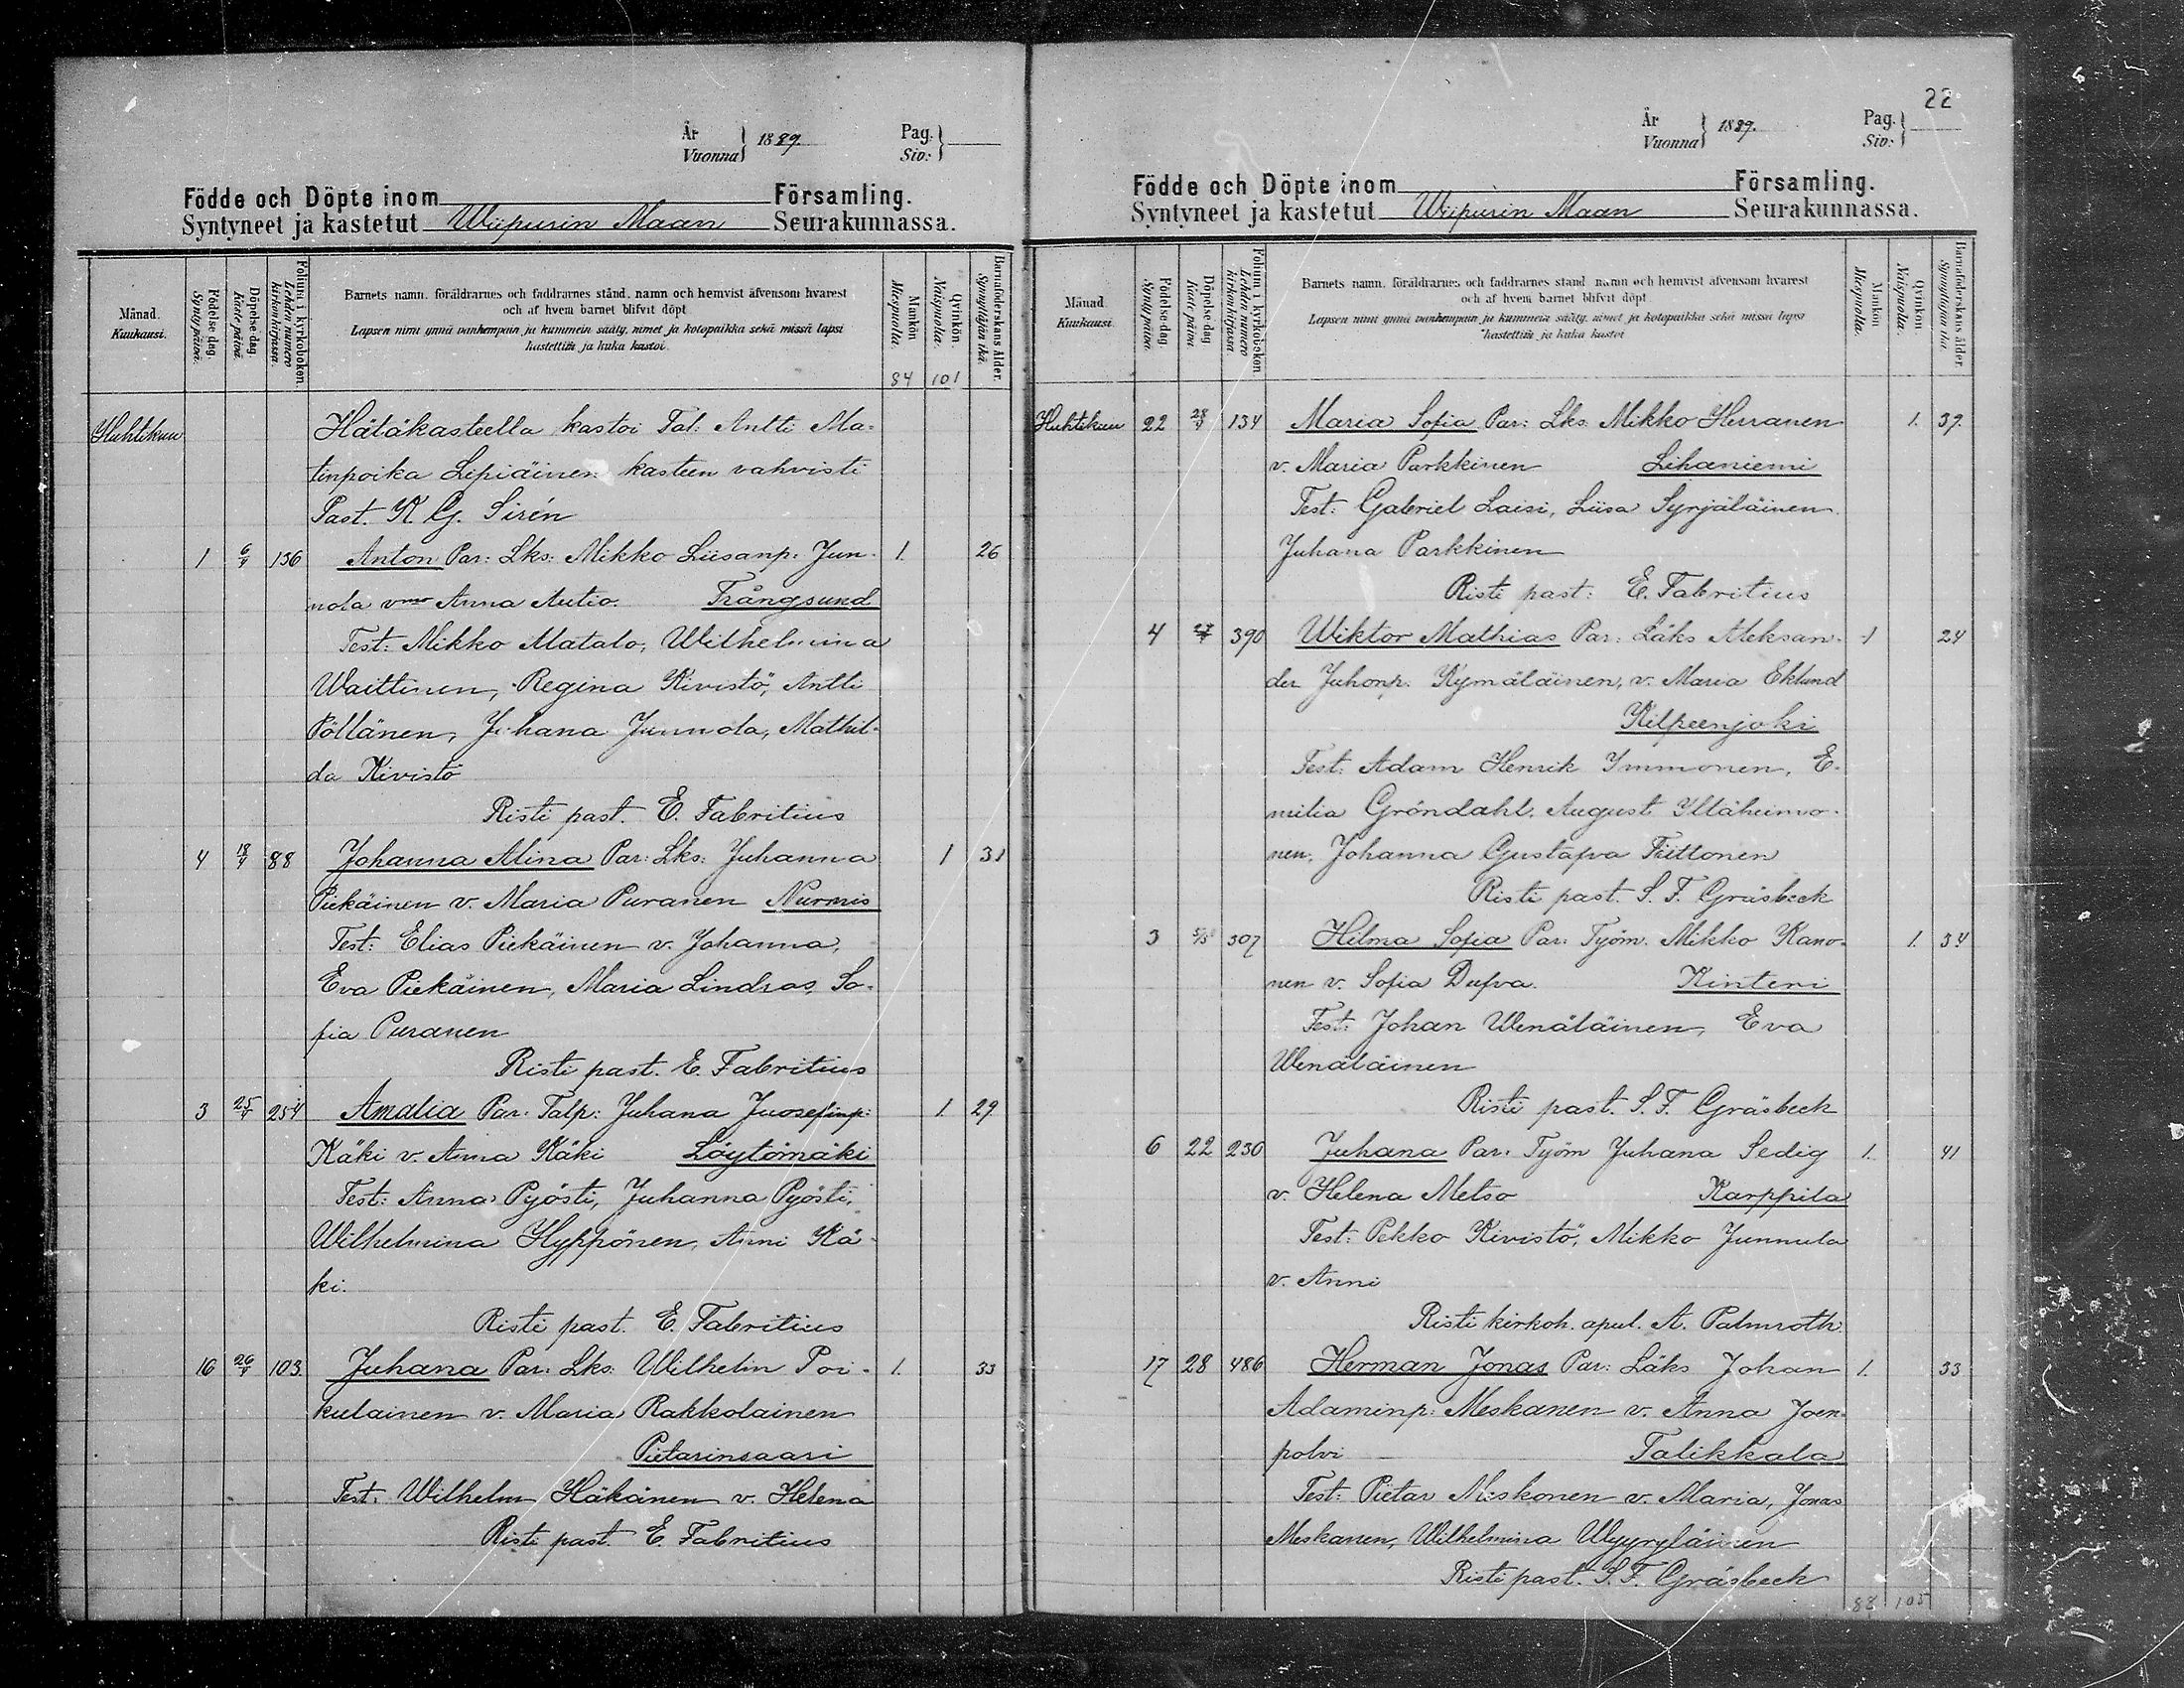 År
Vuonna } 1889.
Pag.
Siv: }
Födde och Döpte inom Församling.
Syntyneet ja kastetut Wiipurin Maan Seurakunnassa.
Månad.
Kuukausi.
Födelse-dag.
Syntypäivä.
Döpelse-dag.
Kaste päivä.
Folium i kyrkoboken.
Lehden numero kirkonkirjassa.
Barnets namn, föräldrarnes och faddrarnes stånd, namn och hemvist äfvensom hvarest
och af hvem barnet blifvit döpt
Lapsen nimi ynnä vanhempain ja kummein sääty, nimet ja kotopaikka sekä missä lapsi
kastettiin ja kuka kastoi.
Mankön
Miespuolia.
Qvinkön
Naispuolia.
Barnaföderskans ålder.
Synnyttäjän ikä.
84 101
Huhtikuu Hätäkasteella kastoi Tal. Antti Ma-
tinpoika Lepiäinen kasteen vahvisti
Past. K G. Sirén
1 6/4 136 Anton Par: Lks: Mikko Liisanp: Jun- 1. 26
nola vmo Anna Autio. Trångsund
Test: Mikko Matalo, Wilhelmina
Waittinen, Regina Kivistö, Antti
Pöllänen, Juhana Junnola, Mathil-
da Kivistö
Risti past. E. Fabritius
4 18/4 88 Johanna Alina Par: Lks: Juhanna 1 31
Piekäinen v. Maria Puranen Nurmis
Test: Elias Piekäinen v. Johanna,
Eva Piekäinen, Maria Lindros, So-
fia Puranen
Risti past. E. Fabritius
3 25/4 254 Amalia Par: Talp: Juhana Juosefinp: 1. 29
Käki v. Anna Käki Löytömäki
Test: Anna Pyösti, Juhanna Pyösti,
Wilhelmina Hyppönen, Anni Kä-
ki.
Risti past. E. Fabritius
16 26/4 103 Juhana Par: Lks: Wilhelm Poi- 1. 33
kulainen v. Maria Rakkolainen
Pietarinsaari
Test: Wilhelm Häkänen v. Helena
Risti past. E. Fabritius
22
År
Vuonna } 1889.
Pag.
Siv: }
Födde och Döpte inom Församling.
Syntyneet ja kastetut Wiipurin Maan Seurakunnassa.
Månad
Kuukausi
Födelse-dag.
Syntypäivä.
Döpelse-dag
Kaste päivä.
Folium i kyrkoboken
Lehden numero kirkonkirjassa
Barnets namn, föräldrarnes och faddrarnes stånd namn och hemvist äfvensom hvarest
och af hvem barnet blifvit döpt
Lapsen nimi ynnä vanhempain ja kummein sääty, nimet ja kotopaikka sekä missä lapsi
kastettiin ja kuka kastoi
Mankön
Miespuolia.
Qvinkön
Naispuolia.
Barnaföderskans ålder
Synnyttäjän ikä
Huhtikuu 22 28/4 134 Maria Sofia Par: Lks: Mikko Herranen 1. 37.
v. Maria Parkkinen Lihaniemi
Test: Gabriel Laisi, Liisa Syrjäläinen
Juhana Parkkinen
Risti past: E. Fabritius
4 27/4 390 Wiktor Mathias Par: Läks Aleksan- 1 24
der Juhonp. Kymäläinen, v. Maria Eklund
Kilpeenjoki
Test: Adam Henrik Immonen, E-
milia Gröndahl, August Ylläheimo-
nen, Johanna Gustafva Tiittonen
Risti past. S. F. Gräsbeck
3 5/5 307 Hilma Sofia Par: Työm. Mikko Kano- 1. 34
nen v. Sofia Dufva. Kinteri
Test: Johan Wenäläinen, Eva
Wenäläinen
Risti past. S. F. Gräsbeck
6 22 230 Juhana Par. Työm Juhana Sedig 1. 41
v. Helena Metso Karppila
Test: Pekko Kivistö, Mikko Junnula
v. Anni
Risti kirkoh. apul. A. Palmroth.
17 28 486 Herman Jonas Par: Läks Johan 1. 33
Adaminp: Meskanen v. Anna Joen-
polvi Talikkala
Test: Pietar Meskonen v. Maria, Jonas
Meskanen, Wilhelmina Wyyryläinen
Risti past. S. F. Gräsbeck
88 105